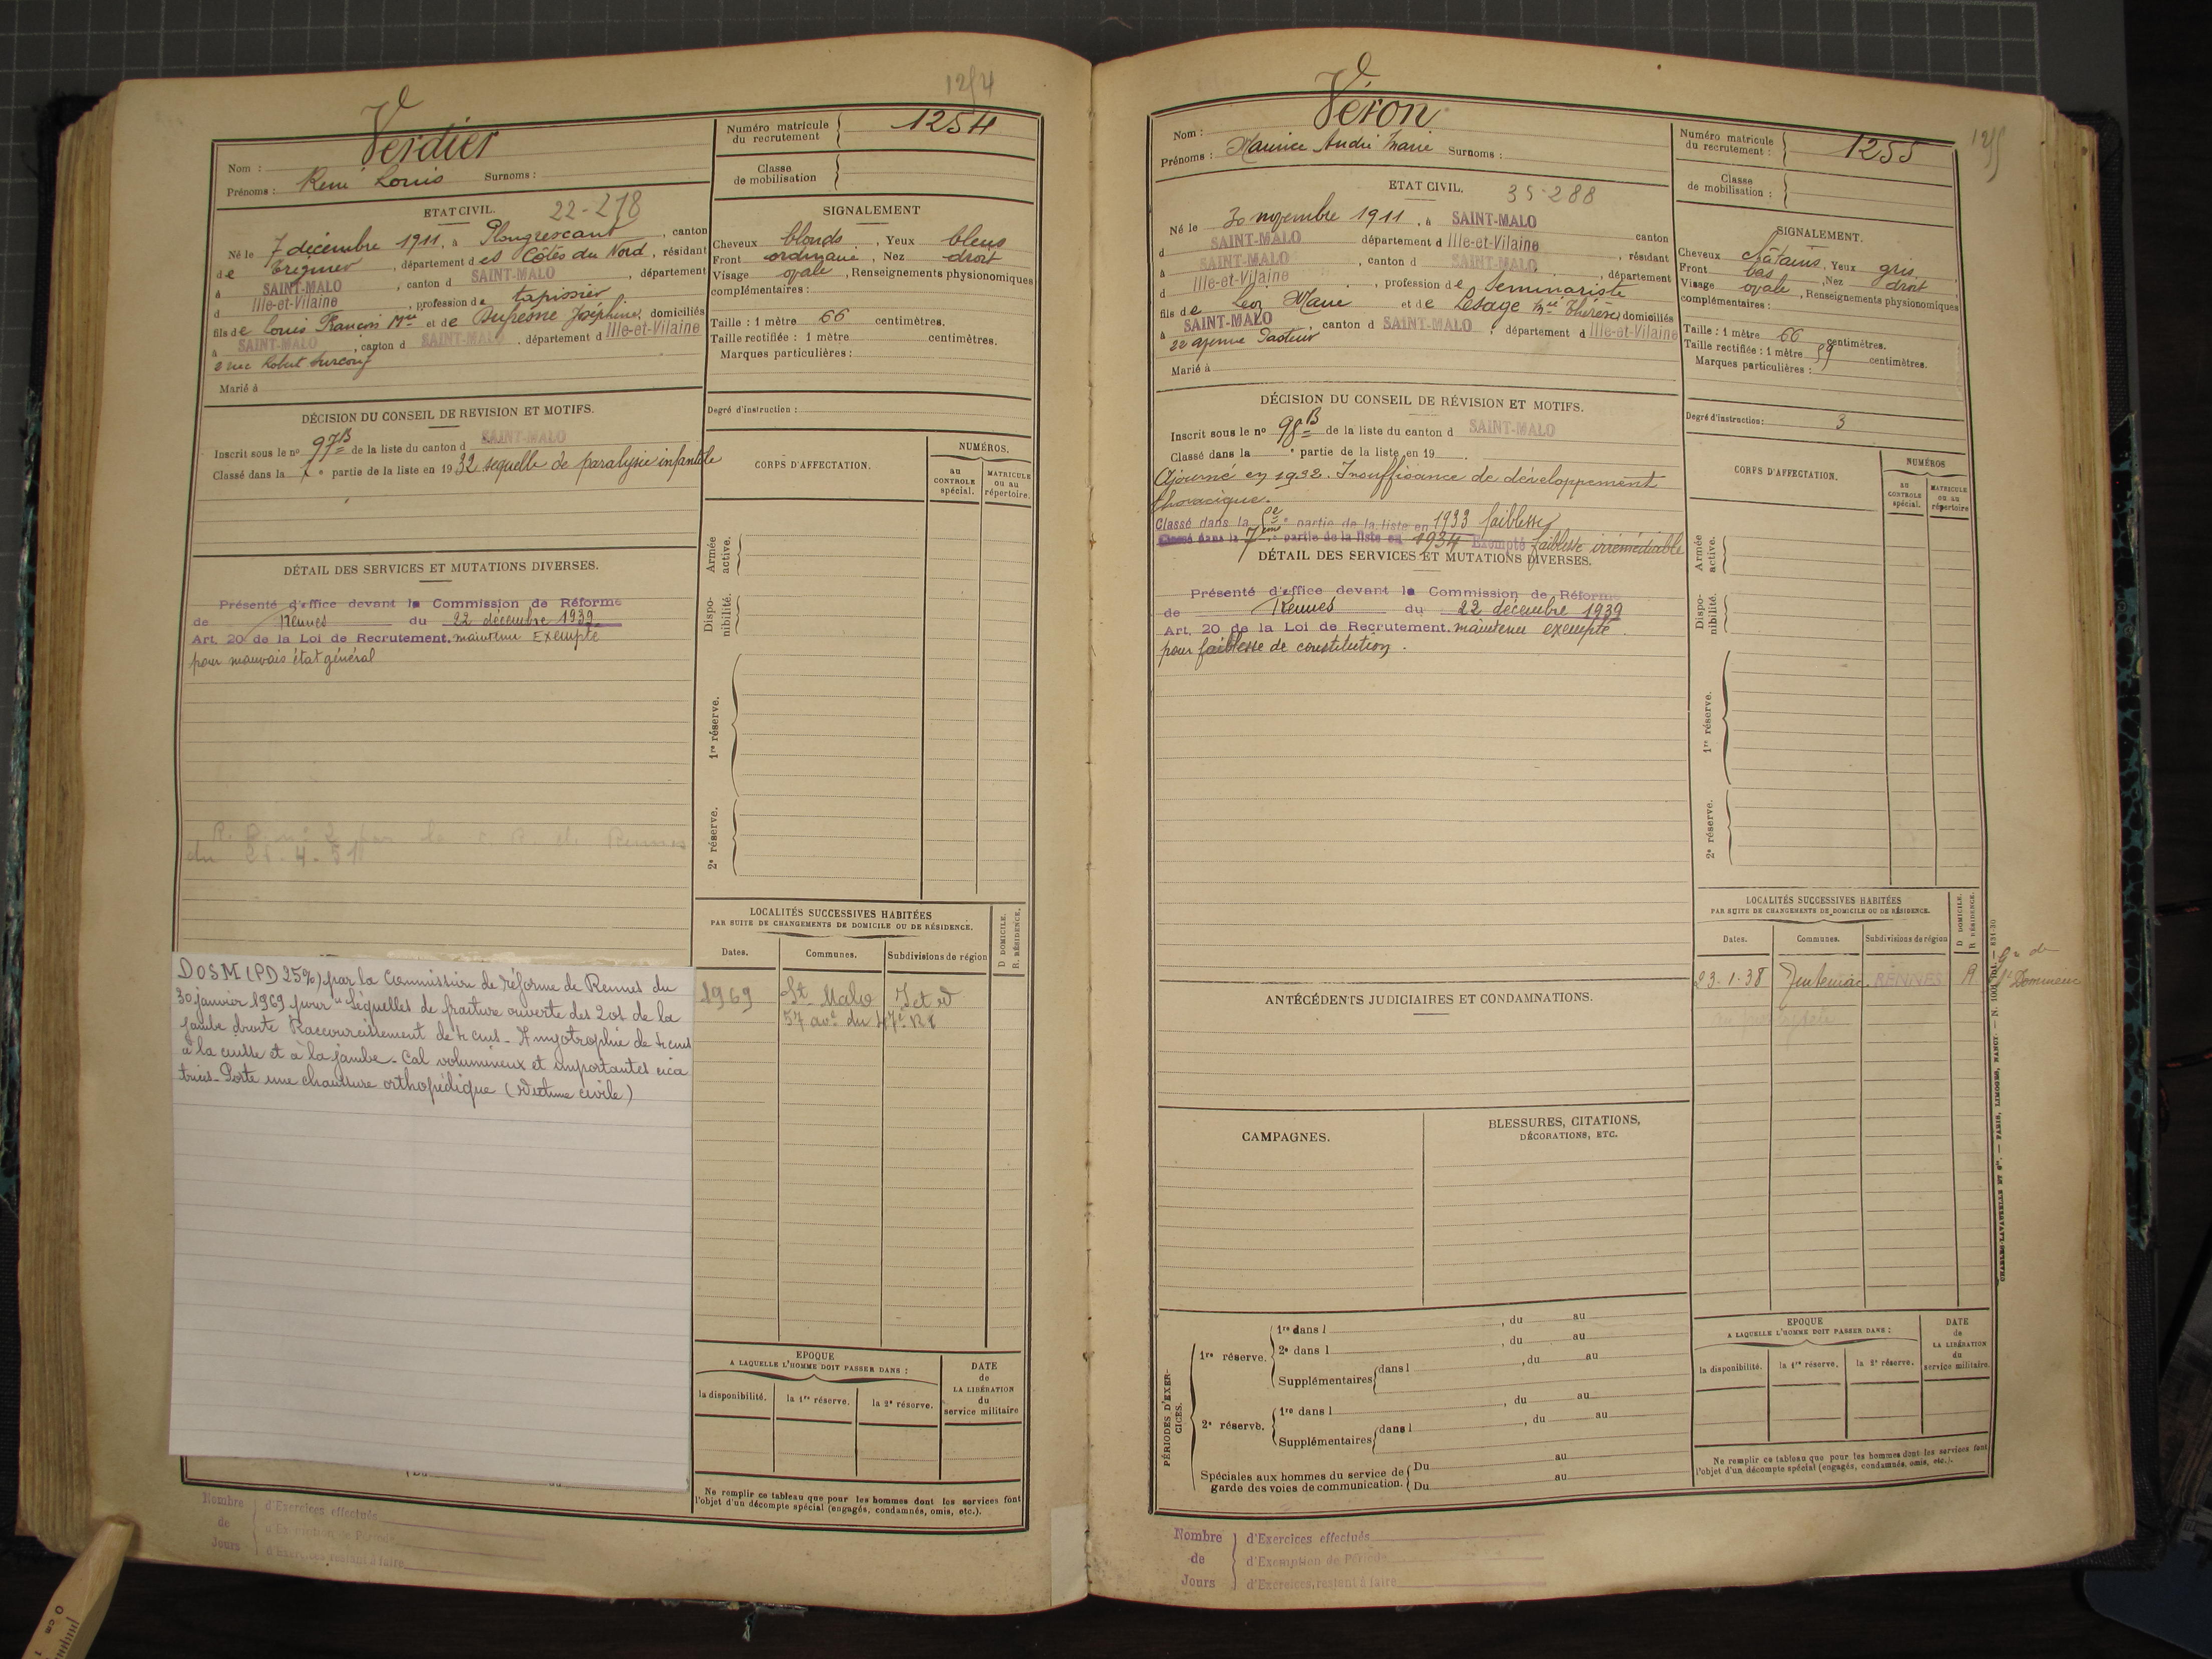 1254
Verdier
Nom :
Prénoms : René Louis Surnoms :
Numéro matricule du recrutement 1254
Classe de mobilisation
ETAT CIVIL. 22-278
Né le 7 décembre 1911, à Plougrescant, canton
de Tréguier, département des Côtes du Nord, résidant
à SAINT-MALO, canton d SAINT-MALO, département
d Ille-et-Vilaine, profession de tapissier
fils de Louis François Mie et de Dufresne Joséphine, domiciliés
à SAINT-MALO, canton d SAINT-MALO, département d Ille-et-Vilaine
2 rue Robert Surcouf
Marié à
SIGNALEMENT
Cheveux blonds, Yeux bleus
Front ordinaire, Nez droit
Visage ovale, Renseignements physionomiques
complémentaires :
Taille : 1 mètre 66 centimètres.
Taille rectifiée : 1 mètre centimètres.
Marques particulières :
Degré d'instruction :
DÉCISION DU CONSEIL DE REVISION ET MOTIFS.
Inscrit sous le no 97B de la liste du canton d SAINT-MALO
Classé dans la 7e partie de la liste en 1932 sequelle de paralysie infantile
CORPS D'AFFECTATION.
NUMÉROS.
AU CONTROLE spécial.
MATRICULE OU AU répertoire.
DÉTAIL DES SERVICES ET MUTATIONS DIVERSES.
Présenté d'office devant la Commission de Réforme
de Rennes du 22 décembre 1939
Art. 20 de la Loi de Recrutement. maintenu Exempté
pour mauvais état général
Armée active.
Dispo-nibilité.
1re réserve.
2e réserve.
LOCALITÉS SUCCESSIVES HABITÉES
PAR SUITE DE CHANGEMENTS DE DOMICILE OU DE RÉSIDENCE.
D DOMICILE.
R. RÉSIDENCE.
Dates. Communes. Subdivisions de région
1969 St Malo I et V
57 ave du 47e RI
DOSM (PD 25%) par la Commission de réforme de Rennes du
30 janvier 1969 pour "Séquelles de fracture ouverte des 2 os de la
jambe droite Raccourcissement de 4 cms - Amyotrophie de 4 cms
à la cuisse et à la jambe - Cal volumineux et importantes cica
trices - Porte une chaussure orthopédique (Victime civile)
EPOQUE
A LAQUELLE L'HOMME DOIT PASSER DANS :
la disponibilité. la 1re réserve. la 2e réserve.
DATE de LA LIBÉRATION du service militaire
Ne remplir ce tableau que pour les hommes dont les services font
l'objet d'un décompte spécial (engagés, condamnés, omis, etc.).
Nombre de Jours
d'Exercices effectués
d'Exemption de Période
d'Exercices restant à faire
1255
Véron
Nom :
Prénoms : Maurice André Marie Surnoms :
Numéro matricule du recrutement : 1255
Classe de mobilisation :
ETAT CIVIL. 35-288
Né le 30 novembre 1911, à SAINT-MALO
d SAINT-MALO département d Ille-et-Vilaine canton
à SAINT-MALO, canton d SAINT-MALO, résidant
d Ille-et-Vilaine, profession de Séminariste, département
fils de Léon Marie et de Lesage Mie Thérèse domiciliés
à SAINT-MALO, canton d SAINT-MALO, département d Ille-et-Vilaine
22 avenue Pasteur
Marié à
SIGNALEMENT.
Cheveux châtains, Yeux gris
Front bas, Nez droit
Visage ovale, Renseignements physionomiques
complémentaires :
Taille : 1 mètre 66 centimètres.
Taille rectifiée : 1 mètre 59 centimètres.
Marques particulières :
Degré d'instruction : 3
DÉCISION DU CONSEIL DE RÉVISION ET MOTIFS.
Inscrit sous le no 98B de la liste du canton d SAINT-MALO
Classé dans la e partie de la liste en 19
Ajourné en 1932. Insuffisance de développement
thoracique.
Classé dans la partie de la liste en 1933 faiblesse
Classé dans la 7ème partie de la liste en 1934 Exempté faiblesse irrémédiable
CORPS D'AFFECTATION.
NUMÉROS
AU CONTROLE spécial.
MATRICULE OU AU répertoire
DÉTAIL DES SERVICES ET MUTATIONS DIVERSES.
Présenté d'office devant la Commission de Réforme
de Rennes du 22 décembre 1939
Art. 20 de la Loi de Recrutement. maintenu exempté
pour faiblesse de constitution.
Armée active.
Dispo-nibilité.
1re réserve.
2e réserve.
LOCALITÉS SUCCESSIVES HABITÉES
PAR SUITE DE CHANGEMENTS DE DOMICILE OU DE RÉSIDENCE.
D DOMICILE.
R RÉSIDENCE.
Dates. Communes. Subdivisions de région
23-1-38 Tinténiac RENNES R
ANTÉCÉDENTS JUDICIAIRES ET CONDAMNATIONS.
CAMPAGNES.
BLESSURES, CITATIONS,
DÉCORATIONS, ETC.
PÉRIODES D'EXERCICES.
1re réserve.
1re dans l , du au
2e dans l , du au
Supplémentaires dans l , du au
2e réserve.
1re dans l , du au
Supplémentaires dans l , du au
Spéciales aux hommes du service de garde des voies de communication.
Du au
Du au
EPOQUE
A LAQUELLE L'HOMME DOIT PASSER DANS :
la disponibilité. la 1re réserve. la 2e réserve.
DATE de LA LIBÉRATION du service militaire.
Ne remplir ce tableau que pour les hommes dont les services font
l'objet d'un décompte spécial (engagés, condamnés, omis, etc.).
CHARLES-LAVAUZELLE ET Cie. — PARIS, LIMOGES, NANCY
Nombre de Jours
d'Exercices effectués
d'Exemption de Période
d'Exercices restant à faire